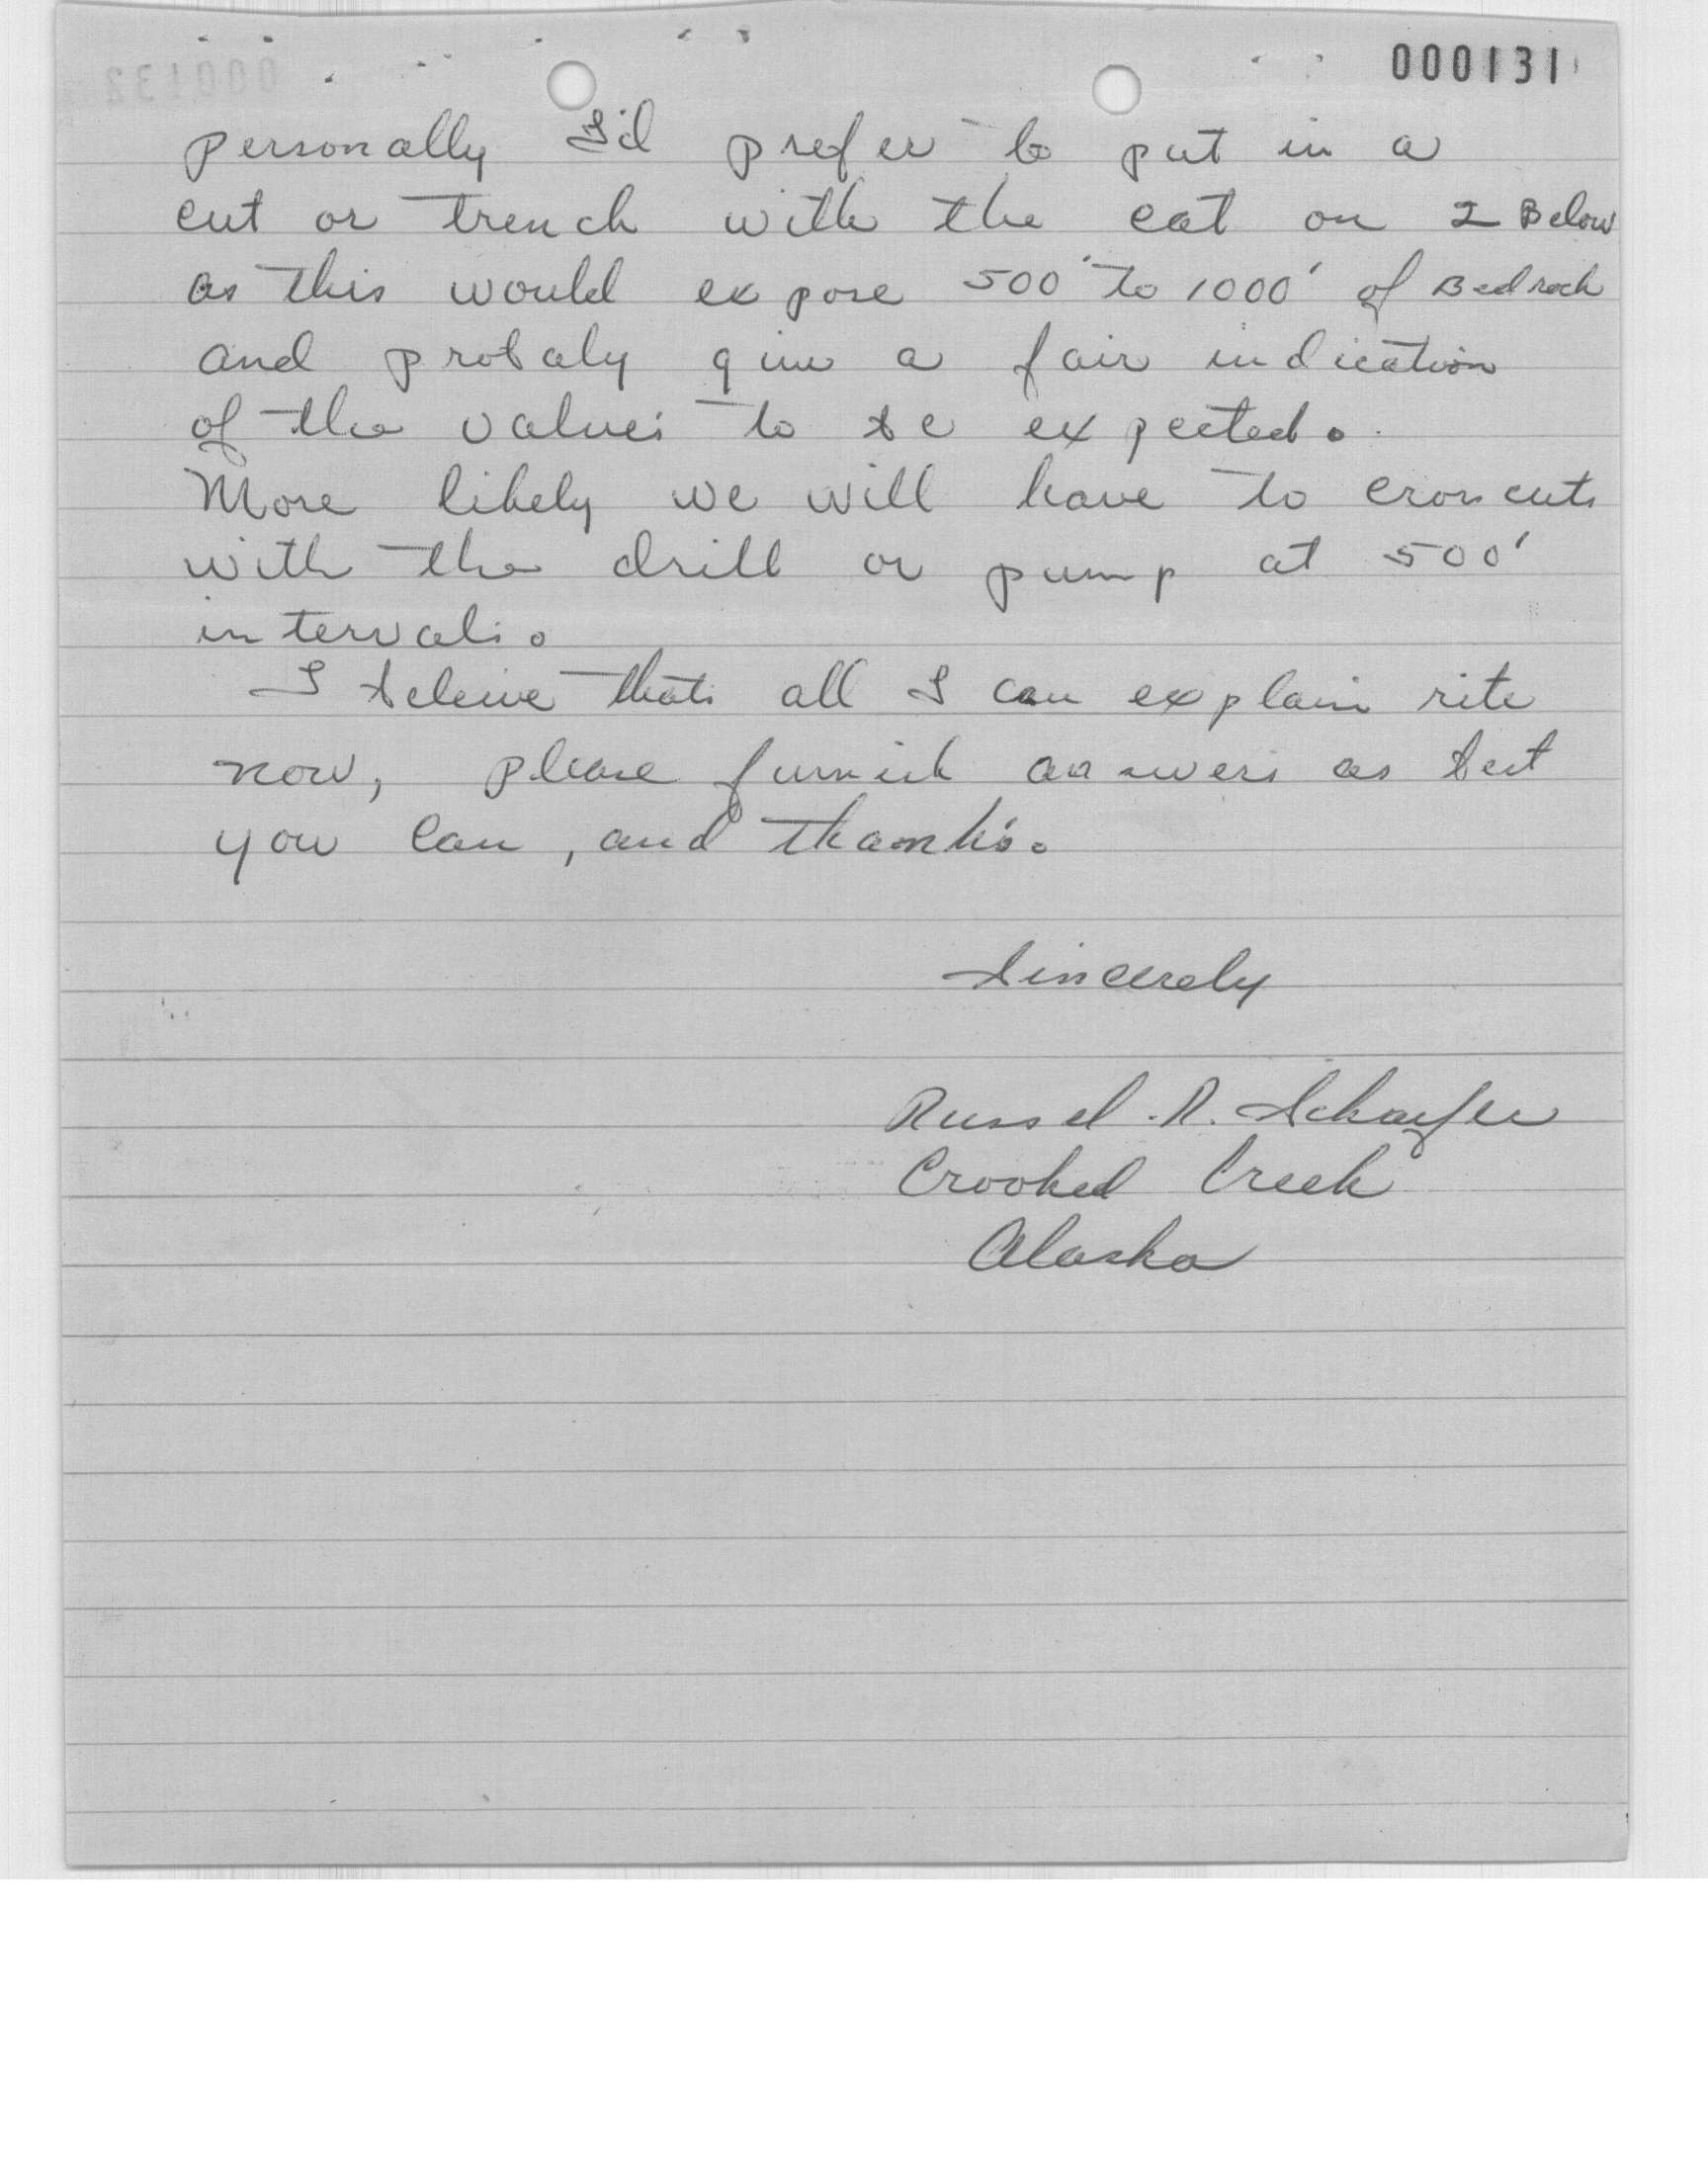 000131
000132
personally I'd prefer to put in a
cut or trench with the cat on 2 Below
as this would expose 500' to 1000' of Bedrock
and probaly give a fair indication
of the values to be expected.
More likely we will have to crosscuts
with the drill or pump at 500'
intervals.
I beleive thats all I can explain rite
now, please furnish answers as best
you can, and thanks.
Sincerely
Russel R. Schaefer
Crooked Creek
Alaska